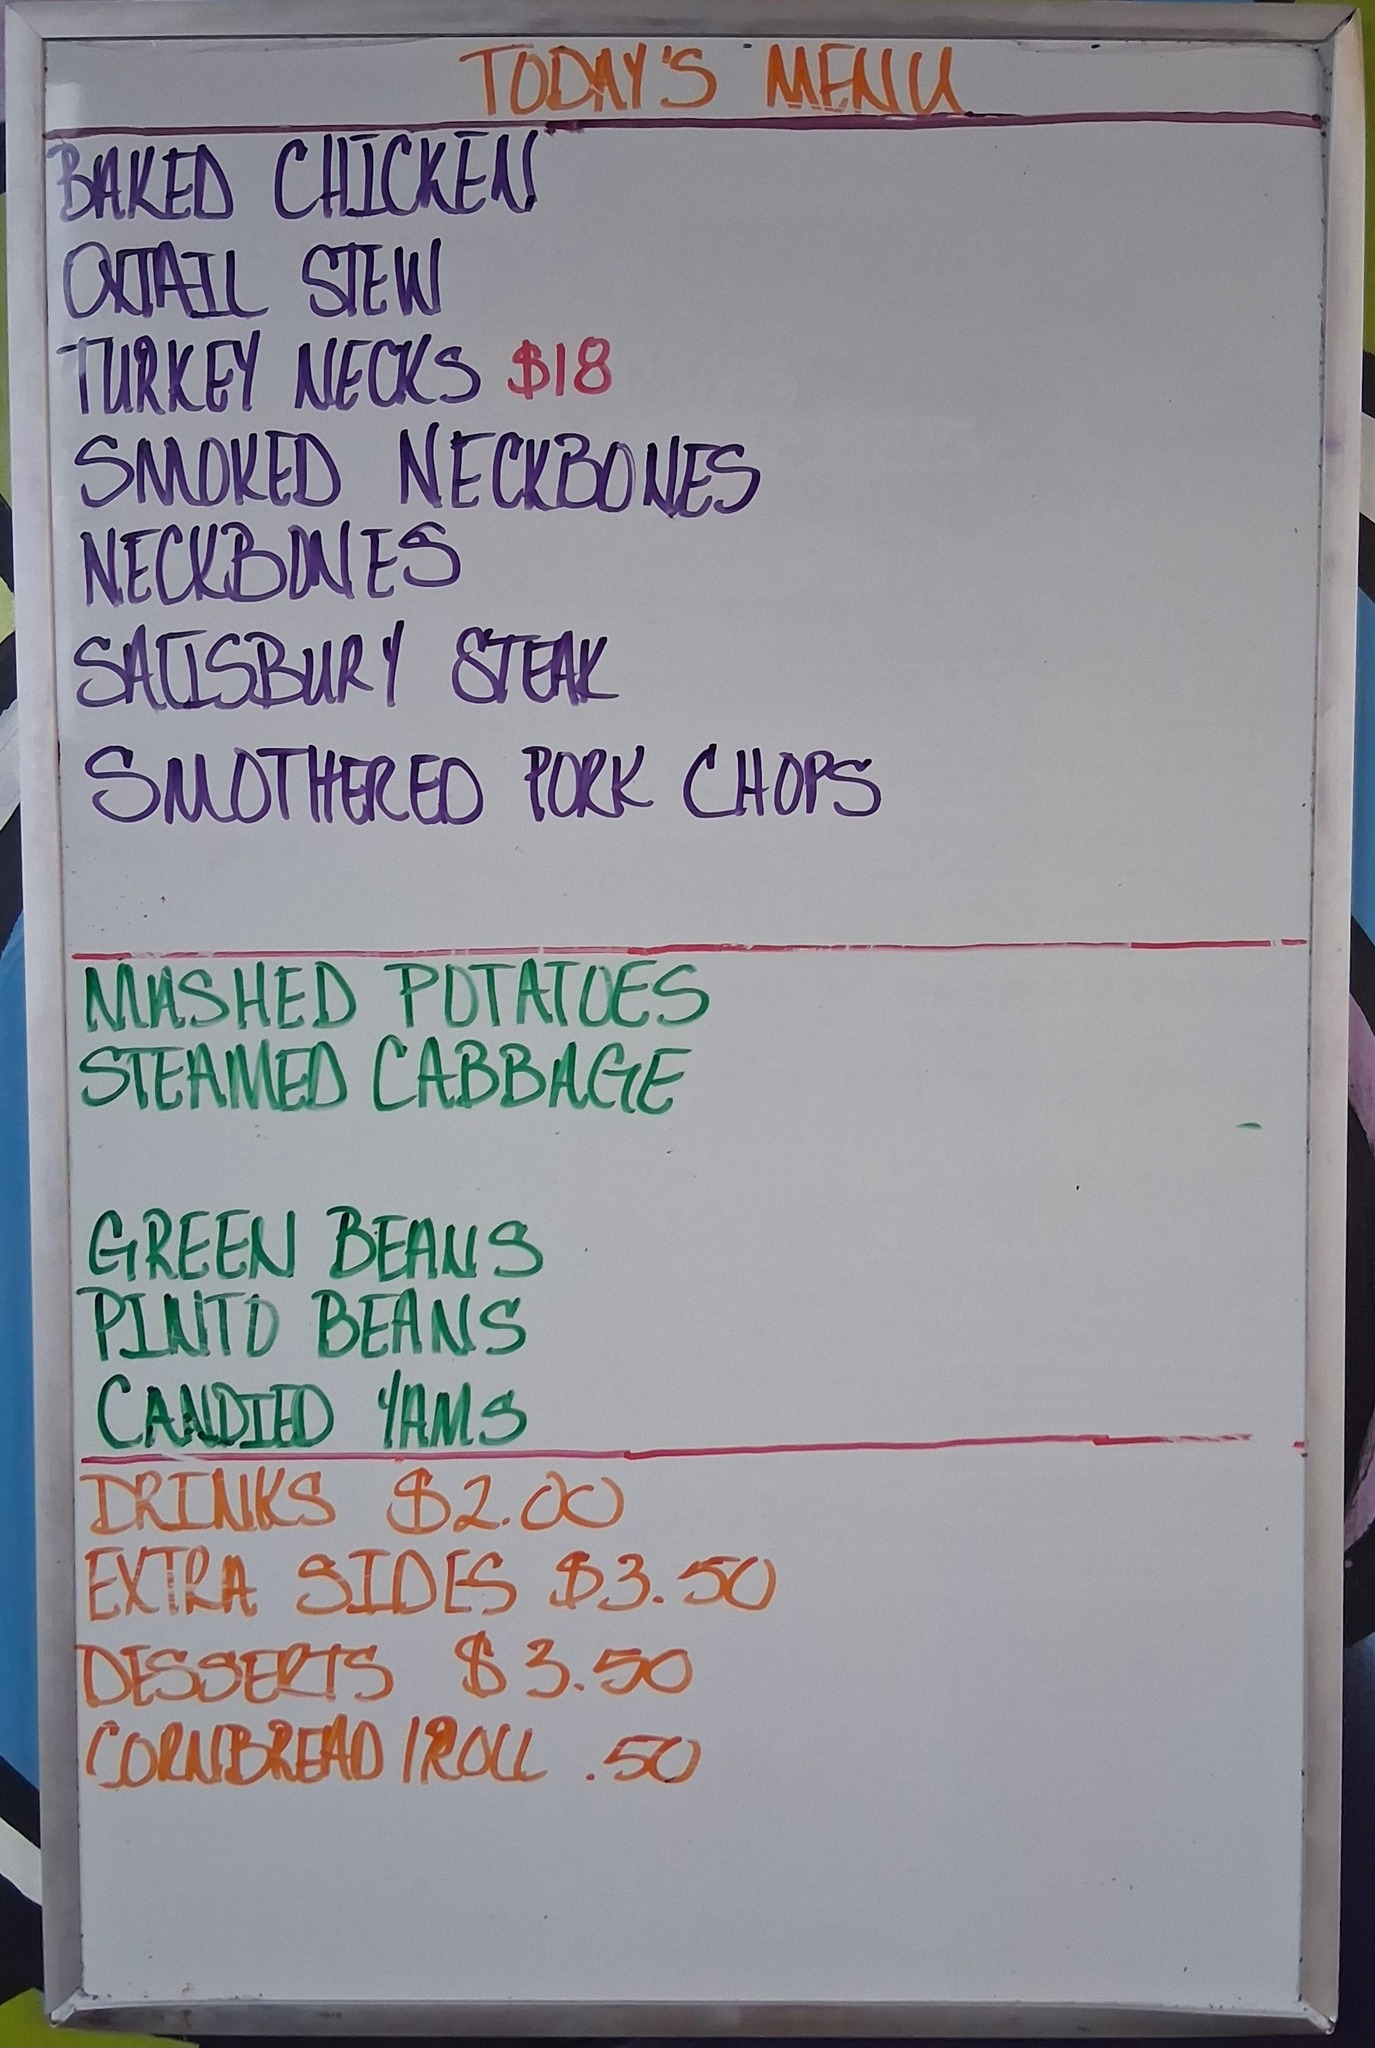 TODAY'S MENU
BAKED CHICKEN
OXTAIL STEW
TURKEY NECKS $18
SMOKED NECKBONES
NECKBONES
SALISBURY STEAK
SMOTHERED PORK CHOPS
MASHED POTATOES
STEAMED CABBAGE
GREEN BEANS
PINTO BEANS
CANDIED YAMS
DRINKS $2.00
EXTRA SIDES $3.50
DESSERTS $3.50
CORNBREAD/ROLL .50